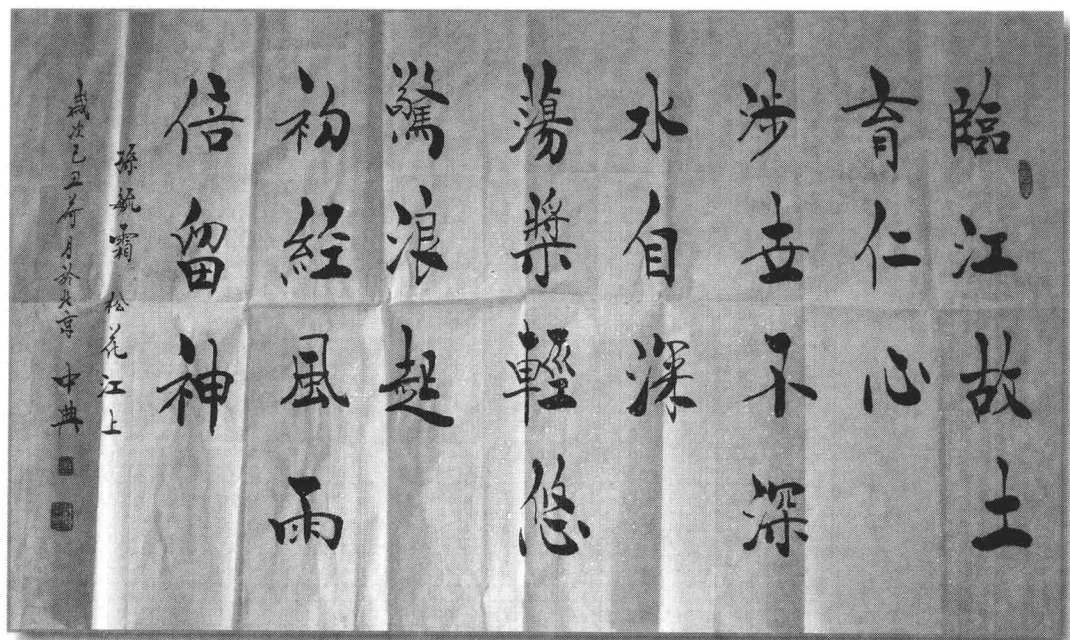 臨江故土
育仁心
涉世不深
水自深
蕩槳輕悠
驚浪起
初經風雨
倍留神
孫毓霜 松花江上
歲次己丑荷月於北京 中典